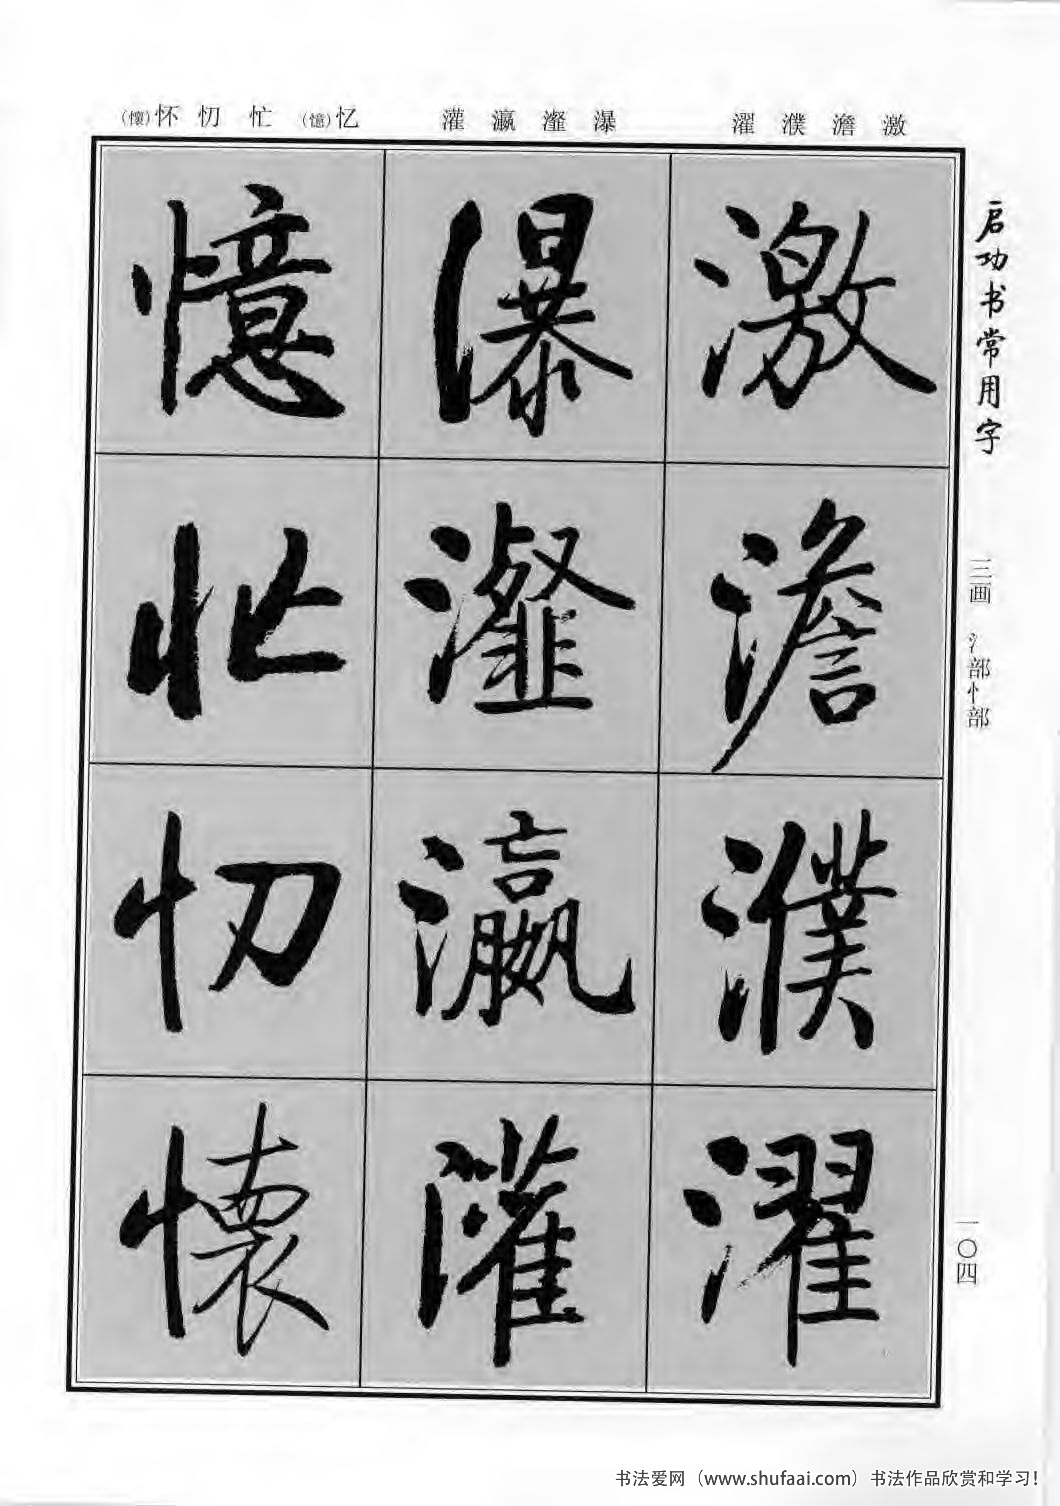 (懷)怀 忉 忙 (憶)忆
灌 瀛 瀣 瀑
濯 濮 澹 激
憶 瀑 激
忙 瀣 澹
忉 瀛 濮
懷 灌 濯
启功书常用字
三画 氵部忄部
一〇四
书法爱网（www.shufaai.com）书法作品欣赏和学习！